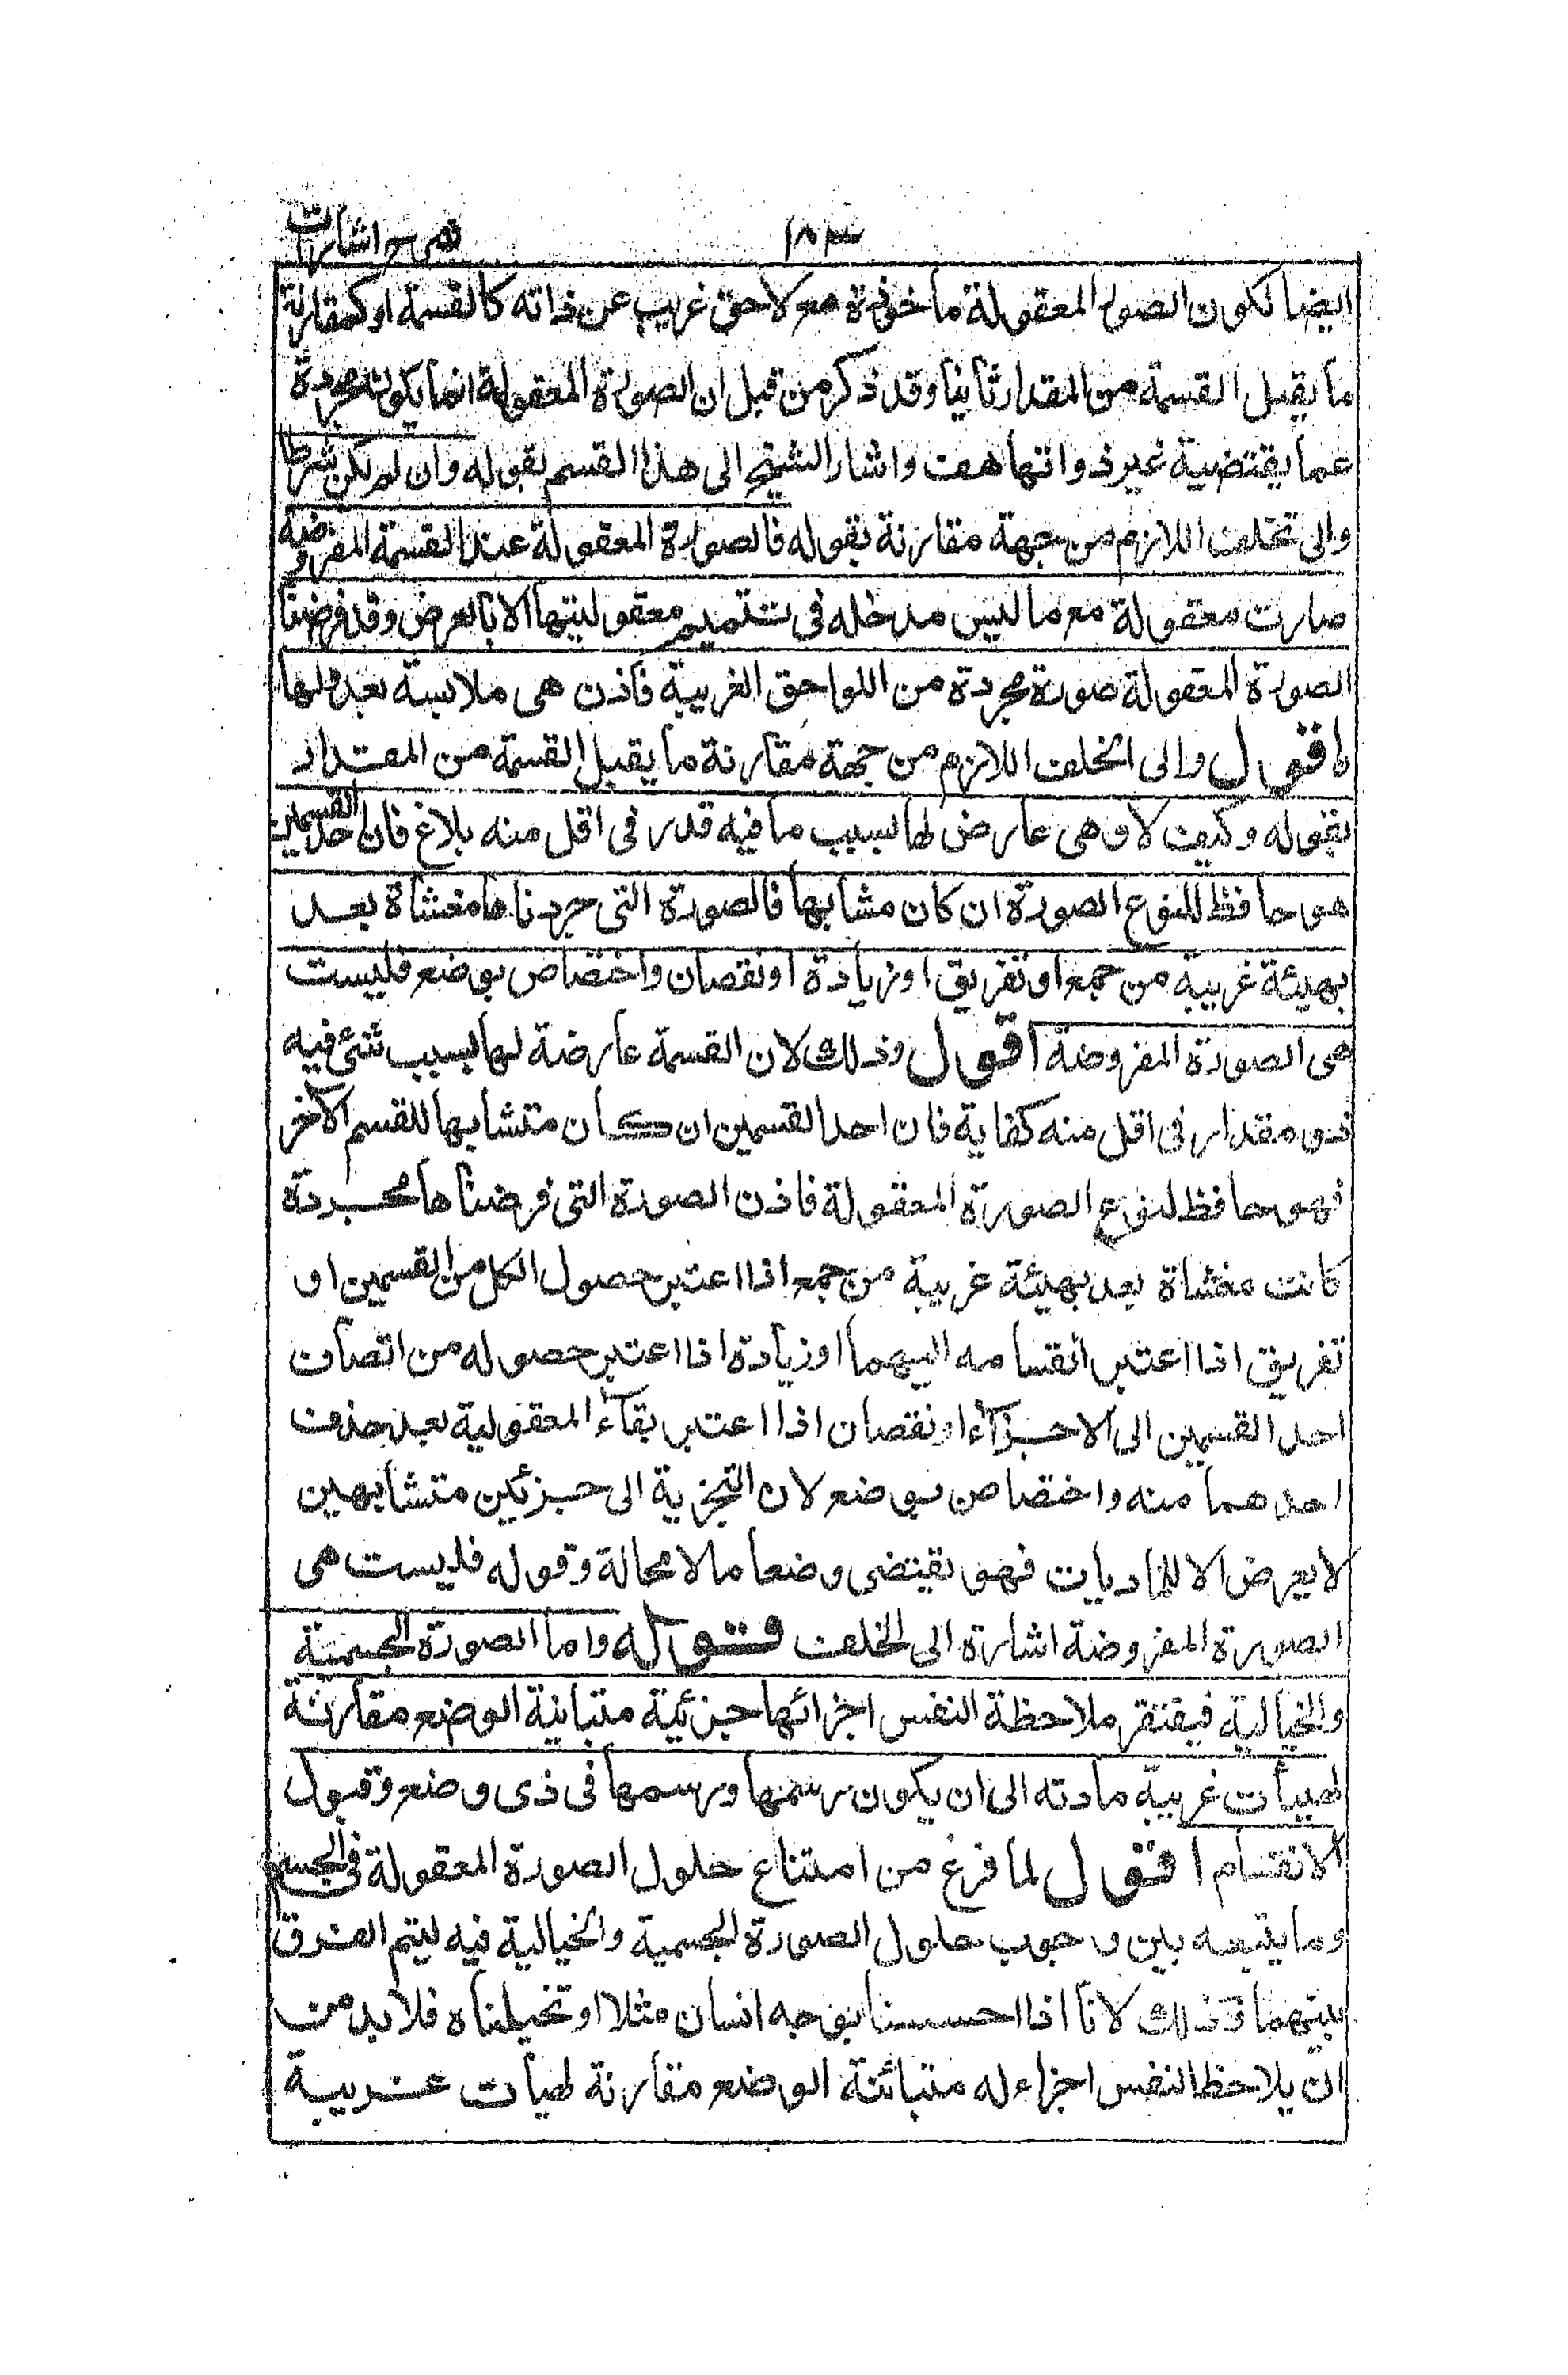 ١٨٣ شرح اشارات
ايضا لكون الصورة المعقولة ماخوذة مع لاحق غريب عن ذاته كالقسمة او كمقارنة
ما يقبل القسمة من المقدار ثانيا وقد ذكر من قبل ان الصورة المعقولة انما يكون مجردة
عما يقتضية غير ذواتها هف واشار الشيخ الى هذا القسم بقوله وان لم يكن شرطا
والى تخلف اللازم من جهة مقارنة بقوله فالصورة المعقولة عند القسمة المفروضة
صارت معقولة مع ما ليس مدخله فى تتميم معقوليتها الا بالعرض وقد فرضنا
الصورة المعقولة صورة مجردة من اللواحق الغريبة فاذن هى ملابسة بعد لها
اقول والى الخلف اللازم من جهة مقارنة ما يقبل القسمة من المقدار
بقوله وكيف لا وهى عارض لها بسبب ما فيه قدر فى اقل منه بلاغ فان احد القسمين
هو حافظ للنوع الصورة ان كان مشابها فالصورة التى جردناها مغشاة بعد
بهيئة غريبة من جمع او تفريق او زيادة او نقصان واختصاص بوضع فليست
هى الصورة المفروضة اقول وذلك لان القسمة عارضة لها بسبب شئ فيه
ذو مقدار فى اقل منه كفاية فان احد القسمين ان كان متشابها للقسم الآخر
فهو حافظ لنوع الصورة المعقولة فاذن الصورة التى فرضناها مجردة
كانت مغشاة بعد بهيئة غريبة من جمع اذا اعتبر حصول الكل من القسمين او
تفريق اذا اعتبر انقسامه اليهما او زيادة اذا اعتبر حصوله من اتصاف
احد القسمين الى الاجزآء او نقصان اذا اعتبر بقآء المعقولية بعد حذف
احدهما منه واختصاص بوضع لان التجزية الى جزئين متشابهين
لا يعرض الا للماديات فهو يقتضى وضعا ما لا محالة وقوله فليست هى
الصورة المفروضة اشارة الى الخلف قوله واما الصورة الجسمية
والخيالية فيفتقر ملاحظة النفس اجزائها جزئية متباينة الوضع مقارنة
لهيأت غريبة مادته الى ان يكون رسمها ورسمها فى ذى وضع وقبول
الانقسام اقول لما فرغ من امتناع حلول الصورة المعقولة فى الجسم
وما يتبعه بين وجوب حلول الصورة الجسمية والخيالية فيه ليتم الفرق
بينهما وذلك لانا اذا احسسنا بوجه انسان مثلا او تخيلناه فلا بد من
ان يلاحظ النفس اجزاء له متبائنة الوضع مقارنة لهيأت غريبة